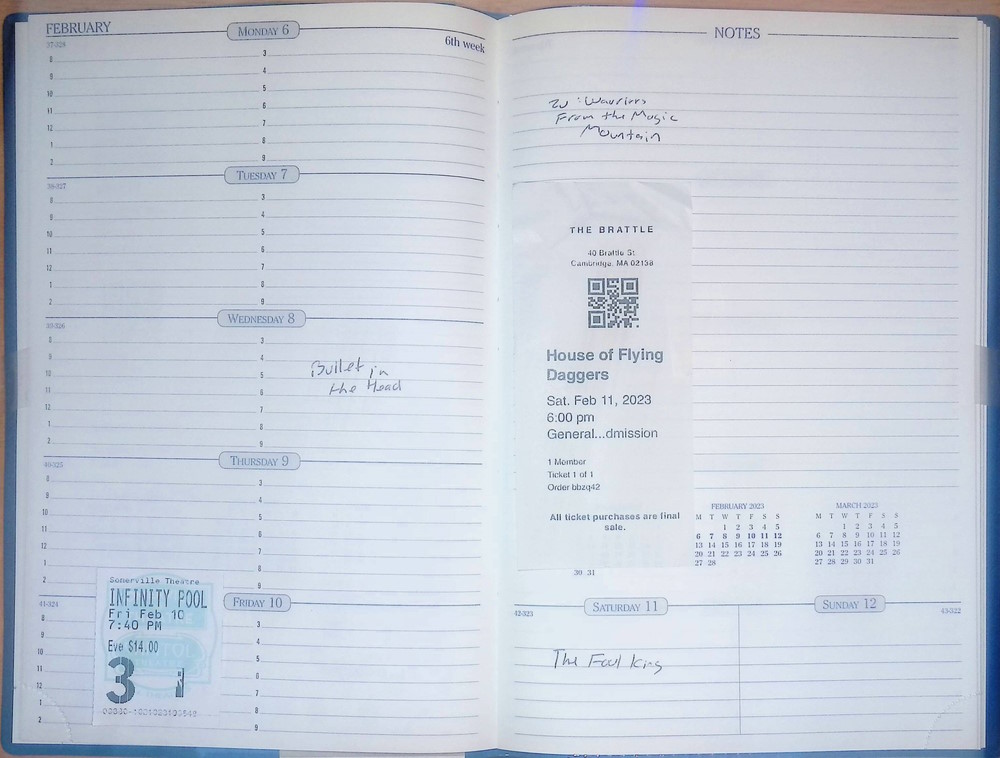 FEBRUARY
MONDAY 6
6th week
37-328
8 3
9 4
10 5
11 6
12 7
1 8
2 9
TUESDAY 7
38-327
8 3
9 4
10 5
11 6
12 7
1 8
2 9
WEDNESDAY 8
39-326
8 3
9 4
10 5
11 6
12 7
1 8
2 9
Bullet in
the Head
THURSDAY 9
40-325
8 3
9 4
10 5
11 6
12 7
1 8
2 9
FRIDAY 10
41-324
8 3
9 4
10 5
11 6
12 7
1 8
2 9
Somerville Theatre
INFINITY POOL
Fri Feb 10
7:40 PM
Eve $14.00
3 1
NOTES
Zu : Warriors
From the Magic
Mountain
THE BRATTLE
40 Brattle St
Cambridge, MA 02138
House of Flying
Daggers
Sat. Feb 11, 2023
6:00 pm
General...dmission
1 Member
Ticket 1 of 1
Order bbzq42
All ticket purchases are final
sale.
30 31
FEBRUARY 2023
M T W T F S S
1 2 3 4 5
6 7 8 9 10 11 12
13 14 15 16 17 18 19
20 21 22 23 24 25 26
27 28
MARCH 2023
M T W T F S S
1 2 3 4 5
6 7 8 9 10 11 12
13 14 15 16 17 18 19
20 21 22 23 24 25 26
27 28 29 30 31
SATURDAY 11
42-323
The Foul King
SUNDAY 12
43-322